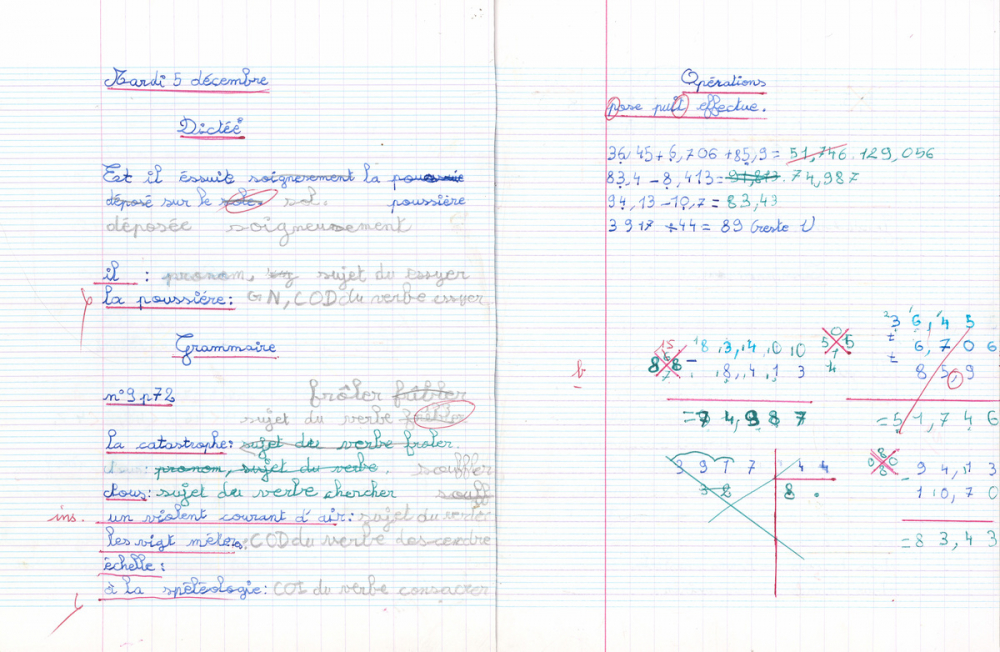 Mardi 5 décembre
Dictée
Est il éssuit soignerement la poussie
déposé sur le sol. poussière
déposée soigneusement
il : pronom, sujet du essuyer
la poussière: GN, COD du verbe essuyer
Grammaire
n°9 p72 frôler
sujet du verbe
la catastrophe: sujet du verbe froler.
tous: pronom, sujet du verbe. souffler
tous: sujet du verbe chercher
ins. un violent courant d'air: sujet du verbe
les vigt mètres: COD du verbe descendre
échelle:
à la spéléologie: COI du verbe consacrer
Opérations
pose puit effectue.
36,45+6,706+85,9= 51,746.129,056
83,4-8,413= 91,813.74,987
94,13-10,7= 83,43
3917÷44= 89 (reste 1)
36,45
+ 6,706
+ 85,9
=51,746
b 8,3,4,0 0
- ,8,4,1 3
=74,987
3917 44
8
94,13
110,70
=83,43